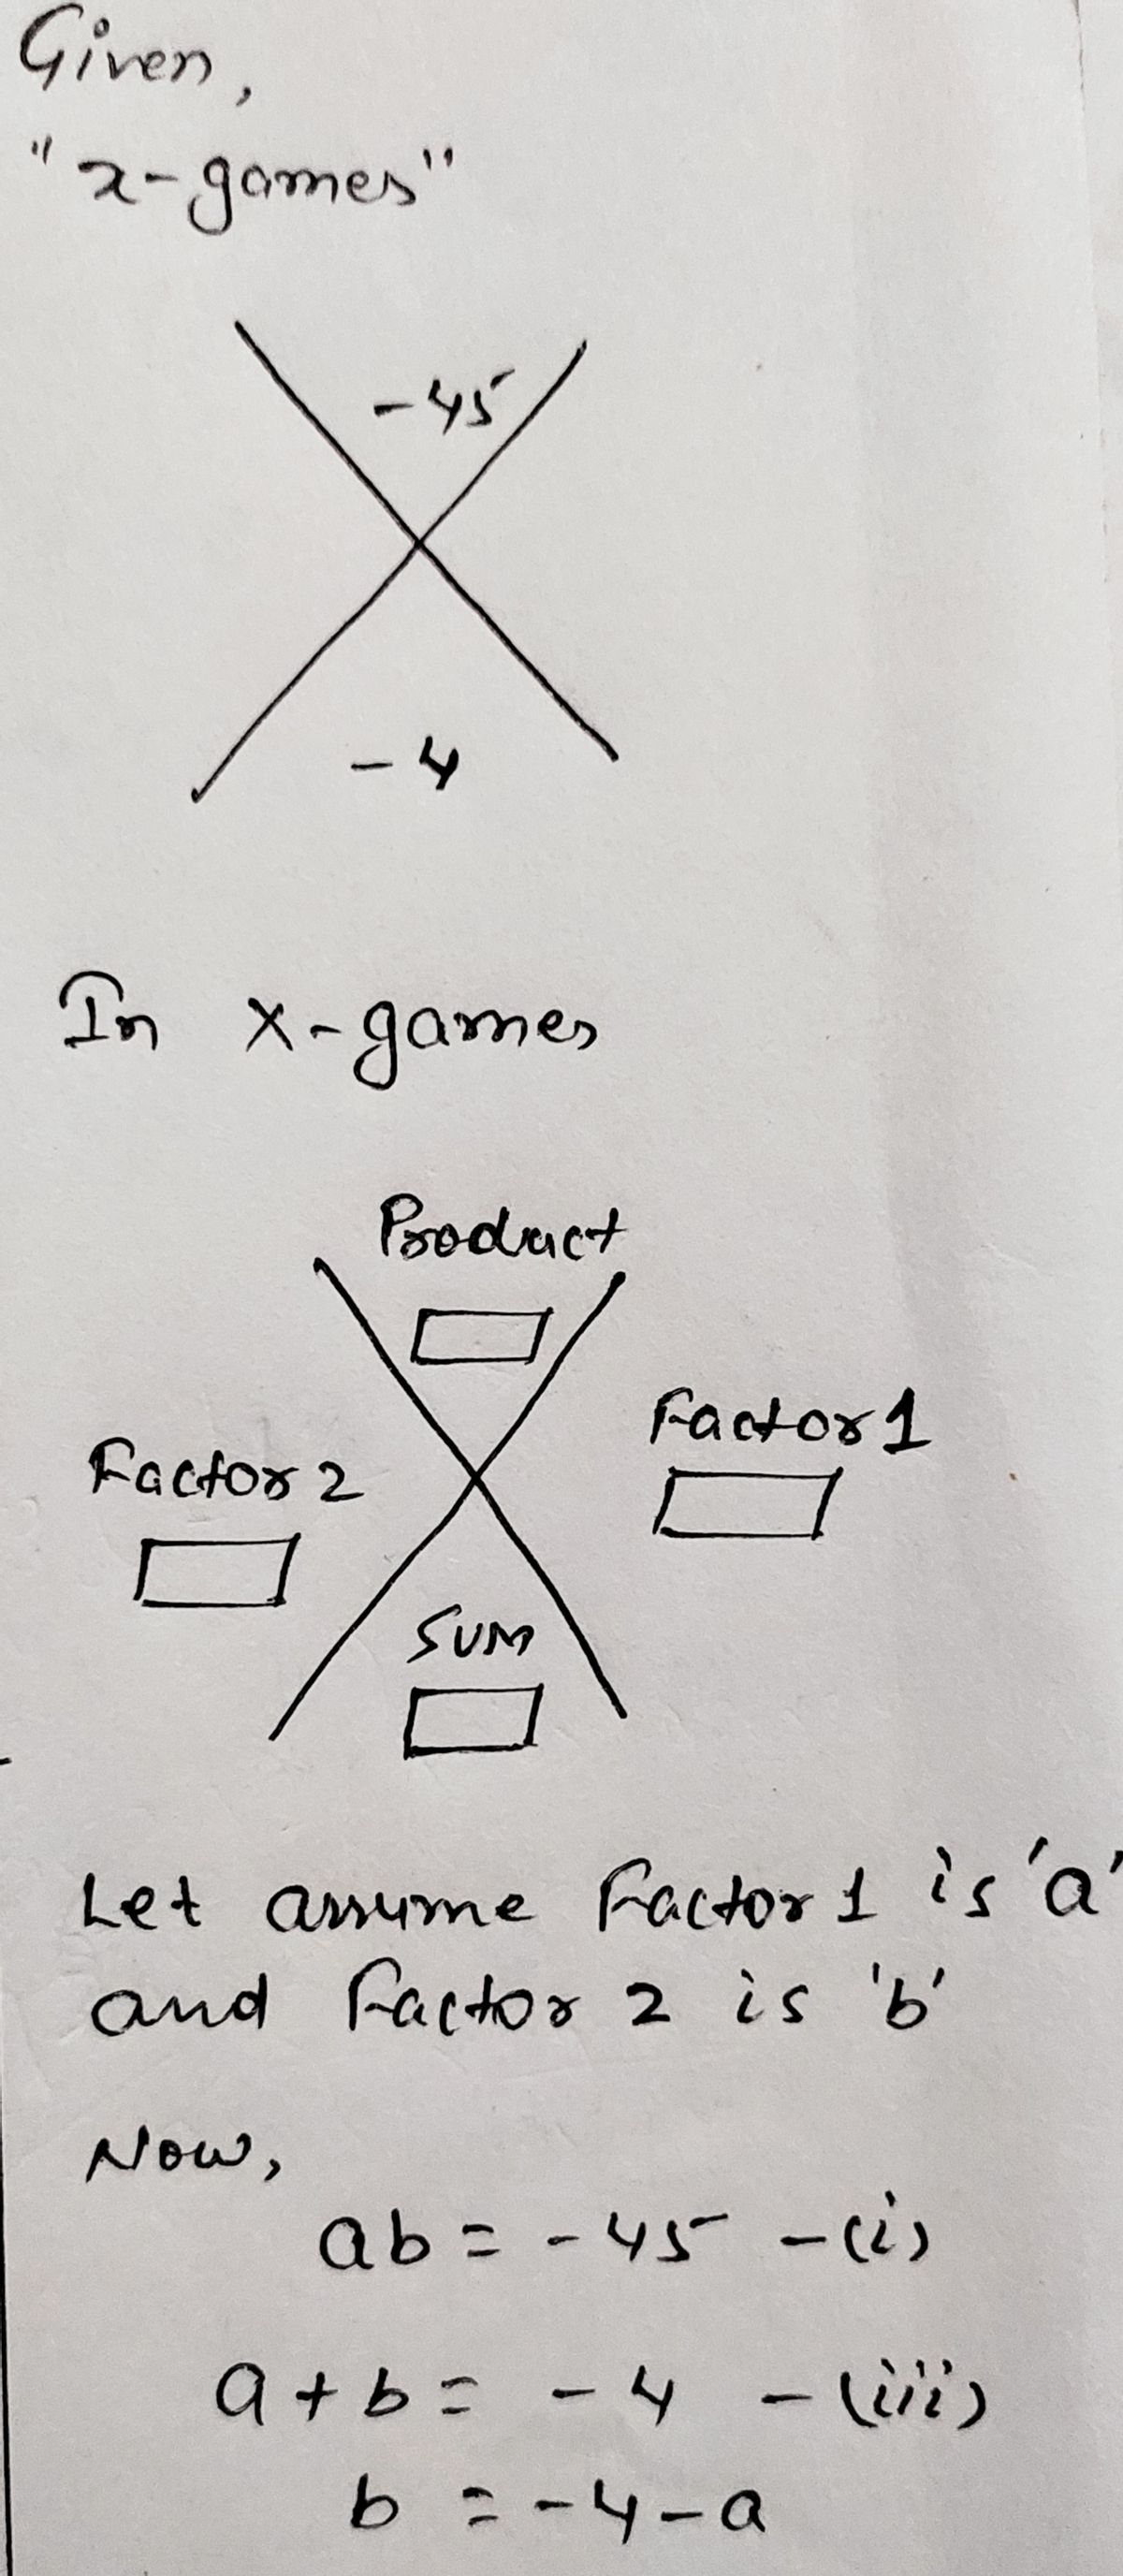 Given,
"x-games"
-45
-4
In x-games
Product
Factor 1
Factor 2
SUM
Let assume Factor 1 is 'a'
and Factor 2 is 'b'
Now,
ab = -45 -(i)
a + b = -4 -(iii)
b = -4-a